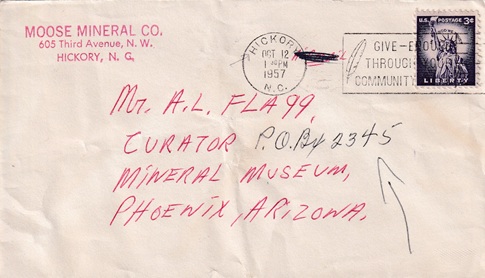 MOOSE MINERAL CO.
605 Third Avenue, N. W.
HICKORY, N. C.
HICKORY
OCT 12
1957
N.C.
GIVE-ENOUGH
THROUGH YOUR
COMMUNITY
U.S. POSTAGE 3¢
LIBERTY
Mr. A.L. FLAGG,
CURATOR P.O. Box 2345
MINERAL MUSEUM,
PHOENIX, ARIZONA.